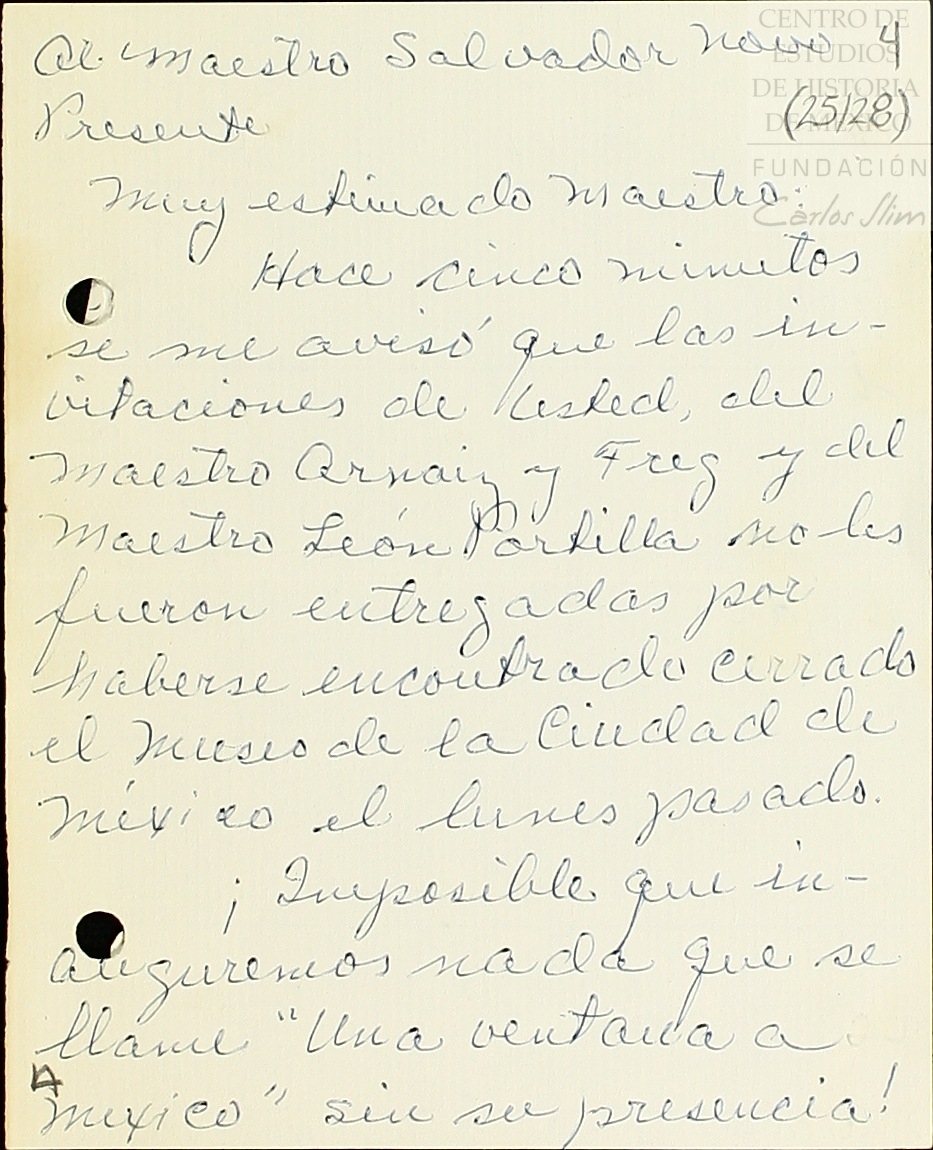 Al Maestro Salvador Novo 4
Presente (25/28)
CENTRO DE
ESTUDIOS
DE HISTORIA
DE MÉXICO
FUNDACIÓN
Carlos Slim
Muy estimado Maestro:
Hace cinco minutos
se me avisó que las in-
vitaciones de Usted, del
Maestro Arnaiz y Freg y del
Maestro León Portilla no les
fueron entregadas por
haberse encontrado cerrado
el Museo de la Ciudad de
México el lunes pasado.
¡Imposible que in-
auguremos nada que se
llame "Una ventana a
México" sin su presencia!